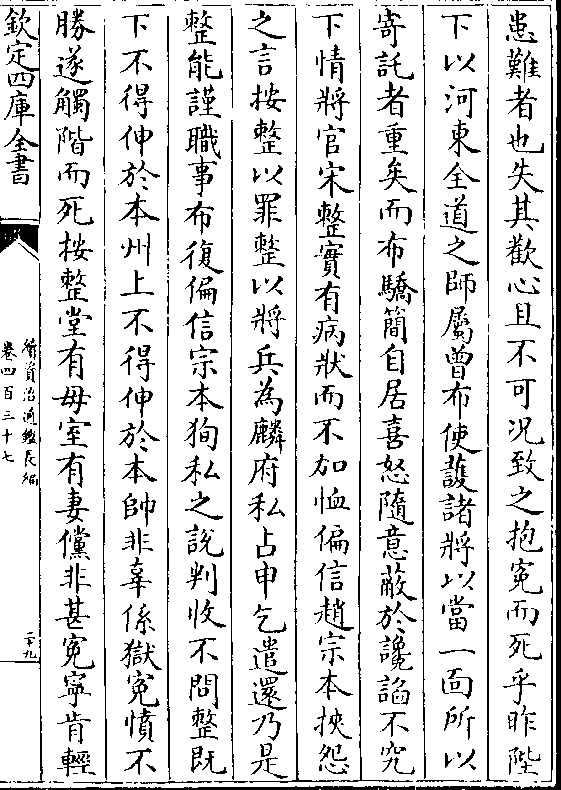 患難者也失其歡心且不可况致之抱寃而死乎昨陛
下以河東全道之師屬曾布使護諸將以當一面所以
寄託者重矣而布驕簡自居喜怒隨意蔽於讒諂不究
下情將官宋整實有病狀而不加恤偏信趙宗本挾怨
之言按整以罪整以將兵為麟府私占申乞遣還乃是
整能謹職事布復偏信宗本狥私之說判收不問整既
下不得伸於本州上不得伸於本帥非辜係獄寃憤不
勝遂觸階而死按整堂有母室有妻儻非甚寃寧肯輕
欽定四庫全書
續資治通鑑長編
卷四百三十七
二十九